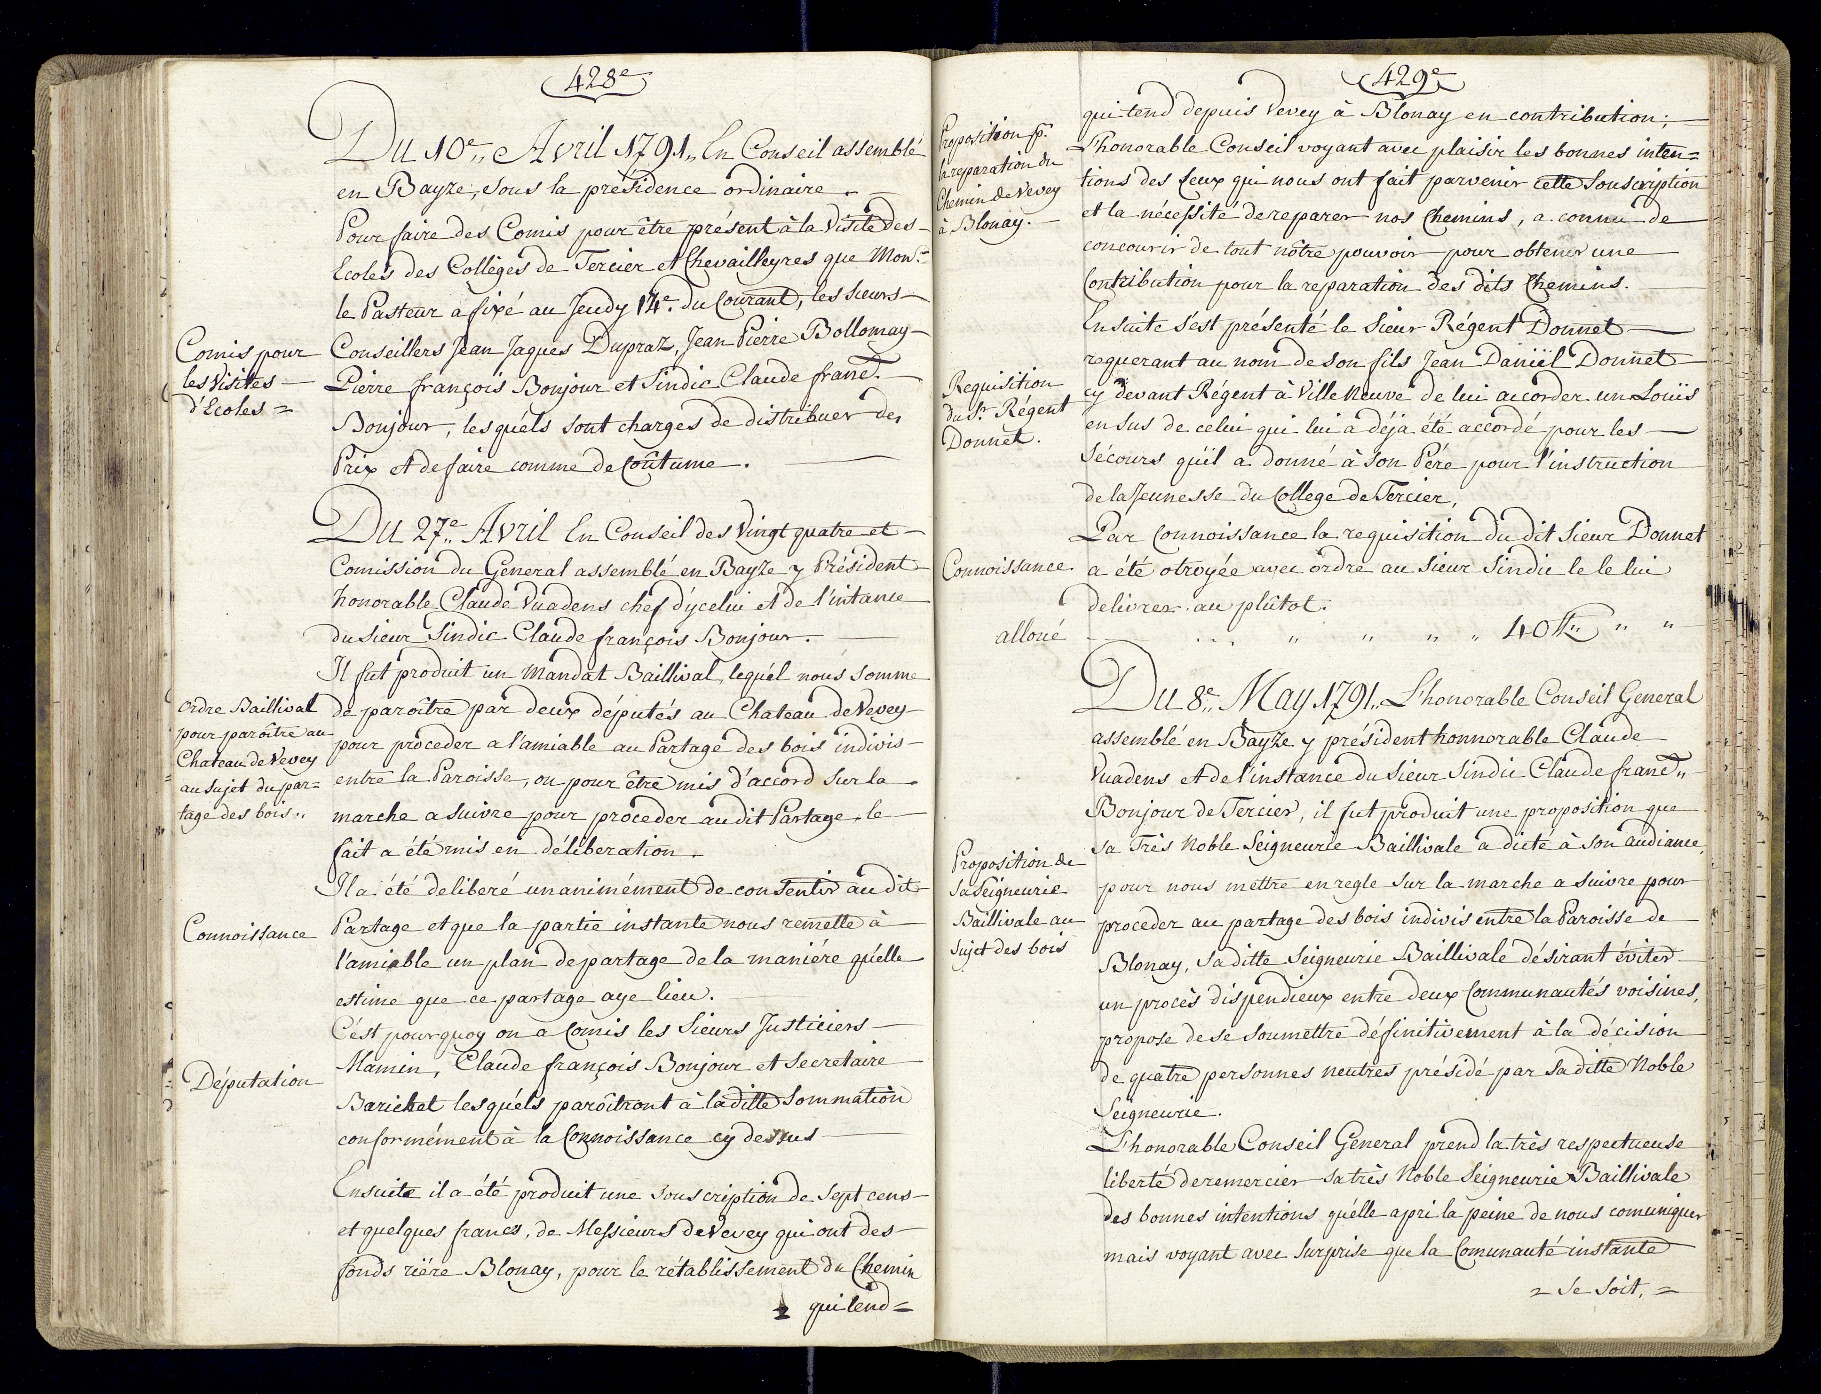 428e
Du 10e,, Avril 1791,, En Conseil assemblé
en Bayze, sous la présidence ordinaire. —
Pour faire des Comis pour être présent à la Visite des —
Ecoles des Collèges de Tercier et Chevailleyres que Monr.
le Pasteur a fixé au Jeudy 14e. du Courant, les sieurs —
Comis pour
les Visites —
d'Ecoles =
Conseillers Jean Jaques Dupraz, Jean Pierre Bollomay —
Pierre françois Bonjour et Sindic Claude franc̃. —
Bonjour, lesquéls sont charges de distribuer des
Prix et de faire comme de Coûtume. —
Du 27e,, Avril En Conseil des Vingt quatre et —
Comission du General assemblé en Bayze y Président
honorable Claude Vuadens chef d'ycelui et de l'intance
du Sieur Sindic Claude françois Bonjour. —
Il fut produit un Mandat Baillival, lequél nous somme
Ordre Baillival
pour parôitre au
Chateau de Vevey
au sujet du par=
tage des bois,,
de parôitre par deux députés au Chateau de Vevey
pour proceder a l'amiable au Partage des bois indivis —
entre la Paroisse, ou pour être mis d'accord sur la
marche a suivre pour proceder au dit Partage, le —
fait a été mis en déliberation.
Il a été deliberé unanimément de consentir au dit
Connoissance
Partage et que la partie instante nous remette à —
l'amiable un plan de partage de la maniére qu'élle
estime que ce partage aye lieu. —
C'est pourquoy on a Comis les Sieurs Justiciers —
Députation
Mamin, Claude françois Bonjour et Secretaire
Barichet lesquéls parôitront à la ditte Sommation
conformément à la Connoissance cy dessus —
Ensuite il a été produit une Souscription de Sept cens —
et quelques francs, de Messieurs de Vevey qui ont des —
fonds riére Blonay, pour le rétablissement du Chemin
= qui tend =
429e
Proposition p.
la reparation du
Chemin de Vevey
à Blonay. —
qui tend depuis Vevey à Blonay en contribution; —
L'honorable Conseil voyant avec plaisir les bonnes inten=
tions des Ceux qui nous ont fait parvenir cette Souscription
et la nécessité de reparer nos Chemins, a connu de
concourir de tout nôtre pouvoir pour obtenir une
Contribution pour la reparation des dits Chemins. —
Ensuite s'est présenté le Sieur Régent Donnet —
Requisition
du Sr. Régent
Donnet.
requerant au nom de son fils Jean Daniël Donnet
cy devant Régent à Ville Neuve de lui accorder un Louïs
en sus de celui qui lui a déja été accordé pour les —
Sécours qu'il a donné à son Pére pour l'instruction
de la Jeunesse du College de Tercier,
Par Connoissance la requisition du dit Sieur Donnet
Connoissance.
a été otroyée avec ordre au Sieur Sindic le le lui
delivrer au plûtot.
alloué — . . . ,, ,, ,, ,, 40 ff,, ,, ,,
Du 8e,, May 1791,, L'honorable Conseil General
assemblé en Bayze y président honnorable Claude
Vuadens et de l'instance du Sieur Sindic Claude franc̃,,
Bonjour de Tercier, il fut produit une proposition que
Proposition de
Sa Seigneurie
Baillivale au
Sujet des bois
Sa Très Noble Seigneurie Baillivale a dicté à son audiance,
pour nous mettre en regle sur la marche a suivre pour
proceder au partage des bois indivis entre la Paroisse de
Blonay, Sa ditte Seigneurie Baillivale désirant éviter
un procès dispendieux entre deux Communautés voisines,
propose de se soumettre définitivement à la décision
de quatre personnes neutres présidé par sa ditte Noble
Seigneurie.
L'honorable Conseil General prend la très respectueuse
liberté de remercier sa très Noble Seigneurie Baillivale
des bonnes intentions qu'élle a pri la peine de nous comuniquer
mais voyant avec surprise que la Comunauté instante
= Se soit, =